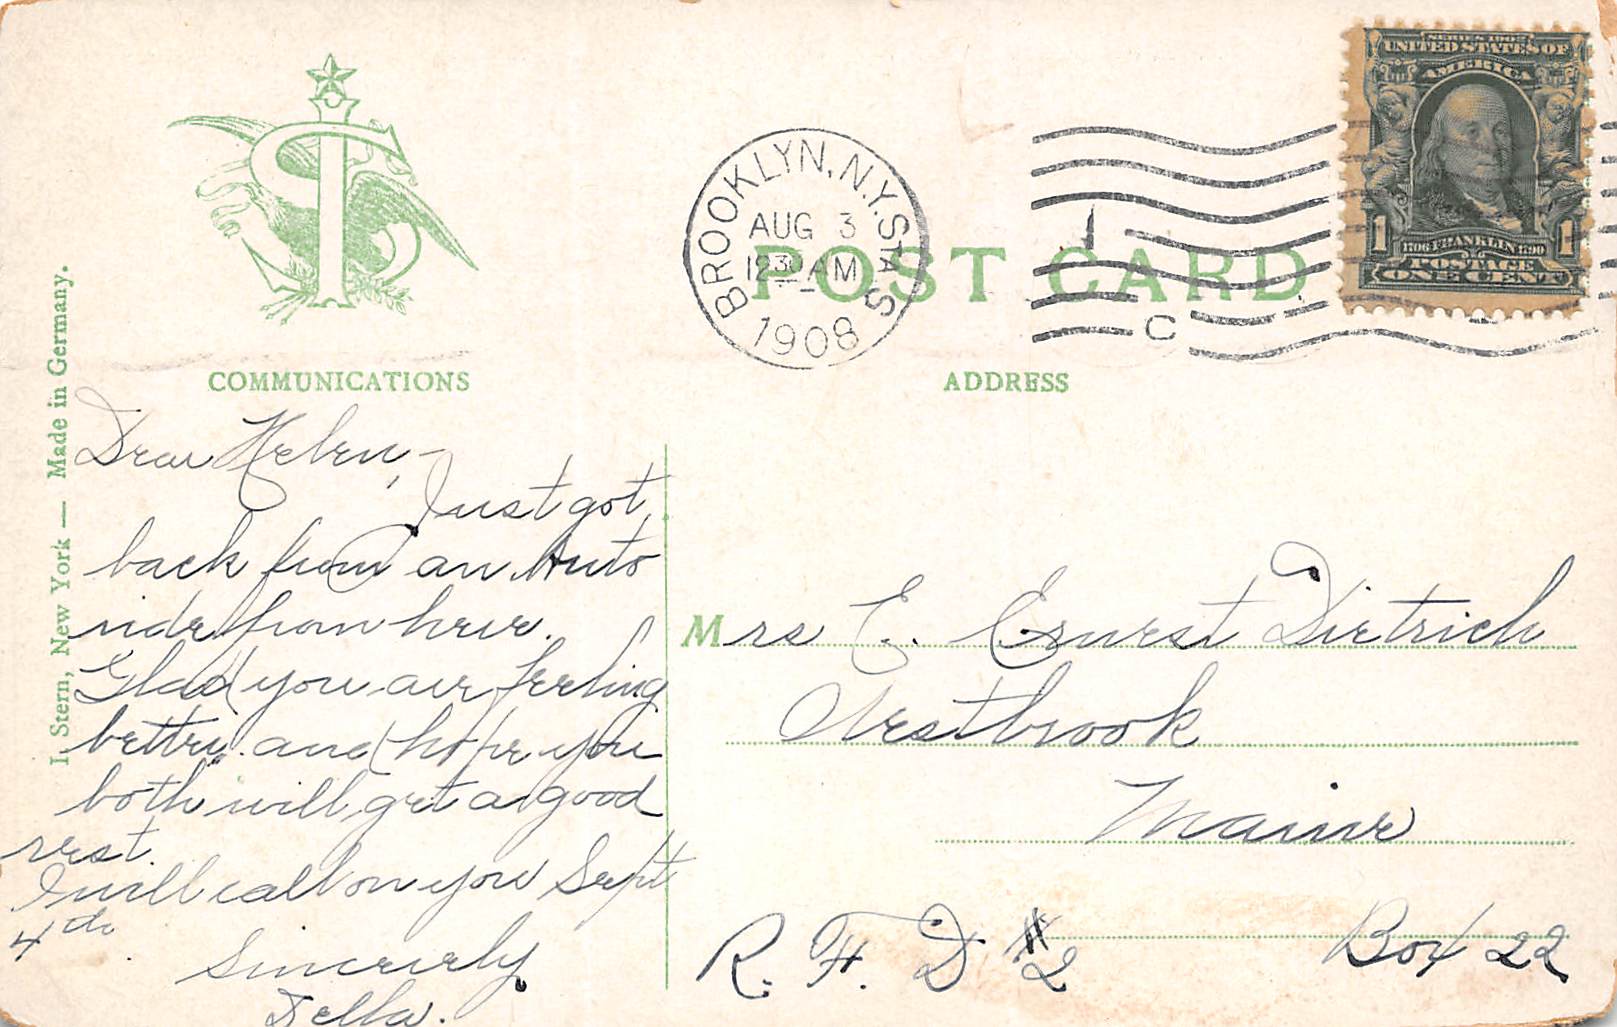 I. Stern, New York — Made in Germany.
BROOKLYN, N.Y. STA S
AUG 3
12 30 AM
1908
C
SERIES 1902
UNITED STATES OF
AMERICA
1 1706 FRANKLIN 1790 1
POSTAGE
ONE CENT
POST CARD
COMMUNICATIONS
ADDRESS
Dear Helen,–
Just got
back from an Auto
ride from here.
Glad you are feeling
better and hope you
both will get a good
rest.
I will call on you Sept
4th.
Sincerely
Della.
Mrs E. Ernest Dietrich
Westbrook
Maine
R. F. D #2 Box 22